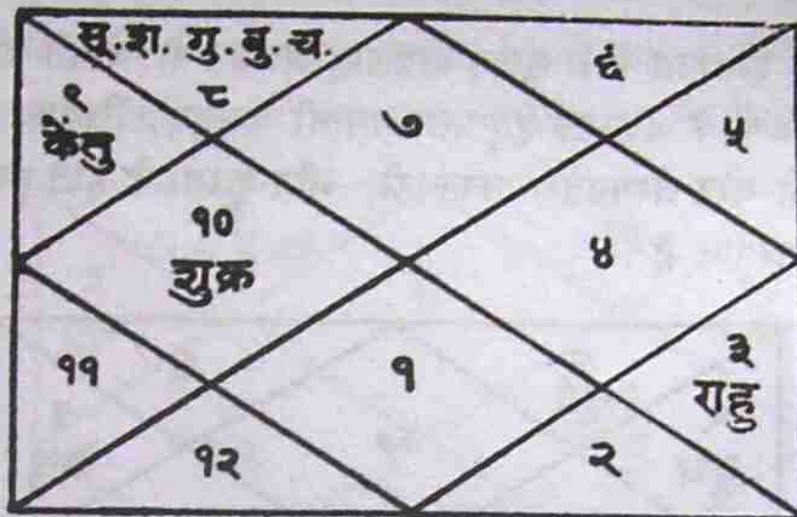 सू. श. गु. बु. च.
८
६
९
केतु
७
५
१०
शुक्र
४
११
१
३
राहु
१२
२